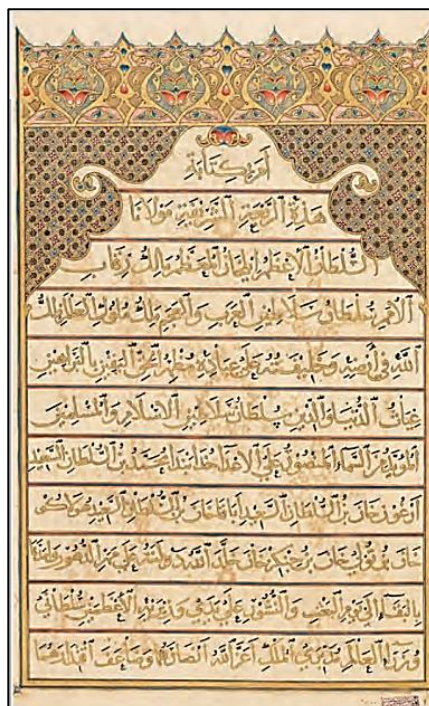 أمر بكتابة
هذه الربعة الشريفة مولانا
السلطان الاعظم ايلخان المعظم مالك رقاب
الامم سلطان سلاطين العرب والعجم ملك ملوك العالم ظل
الله في أرضه وخليفته على عباده مظهر الحق اليقين بالبراهين
غياث الدنيا والدين سلطان سلاطين الاسلام والمسلمين
المؤيد من السماء المنصور على الاعداء خدابنده محمد بن السلطان السعيد
ارغون خان بن السلطان السعيد اباقا خان بن السلطان السعيد هولاكو
خان بن تولي خان بن جنكيز خان خلد الله على مر الدهور
بالبقاء الى يوم البعث والنشور على يدي وزيريه الاعظمين سلطاني
وزراء العالم مدبري الملك اعز الله انصارهما وضاعف اقتدارهما